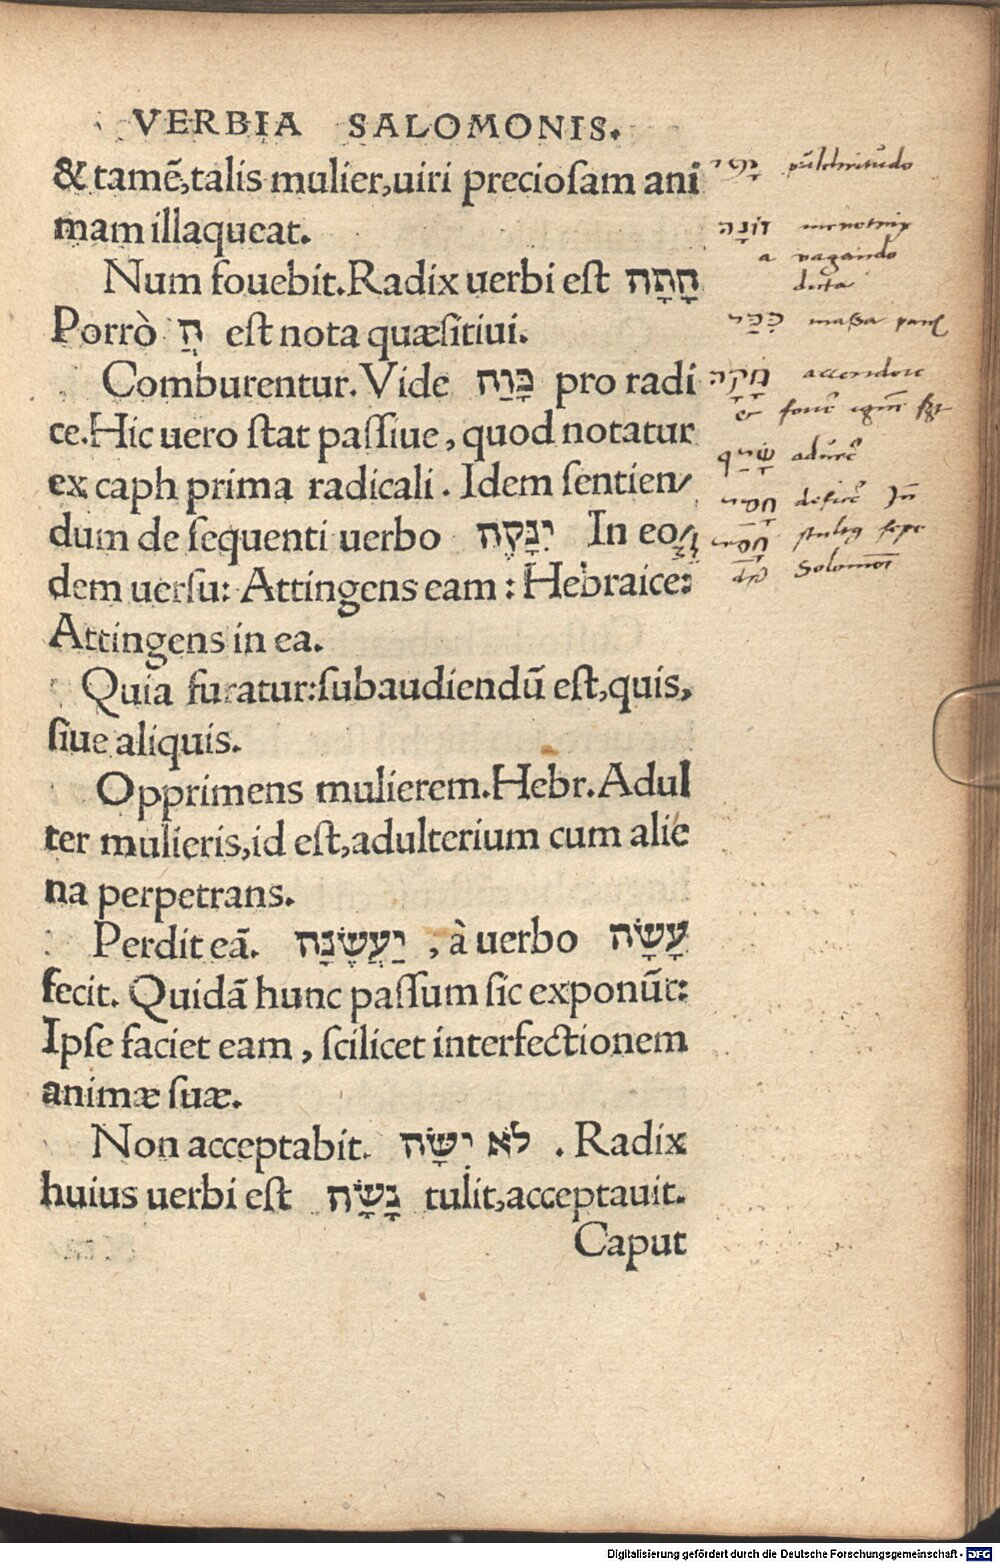 VERBIA SALOMONIS.
& tamē, talis mulier, uiri preciosam ani
mam illaqueat.
Num fouebit. Radix uerbi est חָתָה
Porrò הֲ est nota quæsitiui.
Comburentur. Vide כָּוַה pro radi
ce. Hic uero stat passiue, quod notatur
ex caph prima radicali. Idem sentien/
dum de sequenti uerbo יִנָּקֶה In eo/
dem uersu: Attingens eam: Hebraice:
Attingens in ea.
Quia furatur: subaudiendū est, quis,
siue aliquis.
Opprimens mulierem. Hebr. Adul
ter mulieris, id est, adulterium cum alie
na perpetrans.
Perdit eā. יַעֲשֶׂנָּה, à uerbo עָשָׂה
fecit. Quidā hunc passum sic exponūt:
Ipse faciet eam, scilicet interfectionem
animæ suæ.
Non acceptabit. לֹא יִשָּׂה. Radix
huius uerbi est נָשָׂה tulit, acceptauit.
Caput
pulchritudo
זוֹנָה meretrix
a vagando
dicta
כִּכַּר massa
accendere
Digitalisierung gefördert durch die Deutsche Forschungsgemeinschaft - DFG